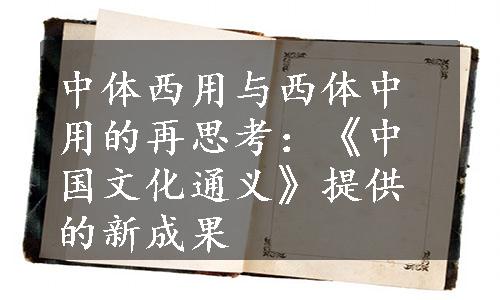 中体西用与西体中
用的再思考：《中
国文化通义》提供
的新成果